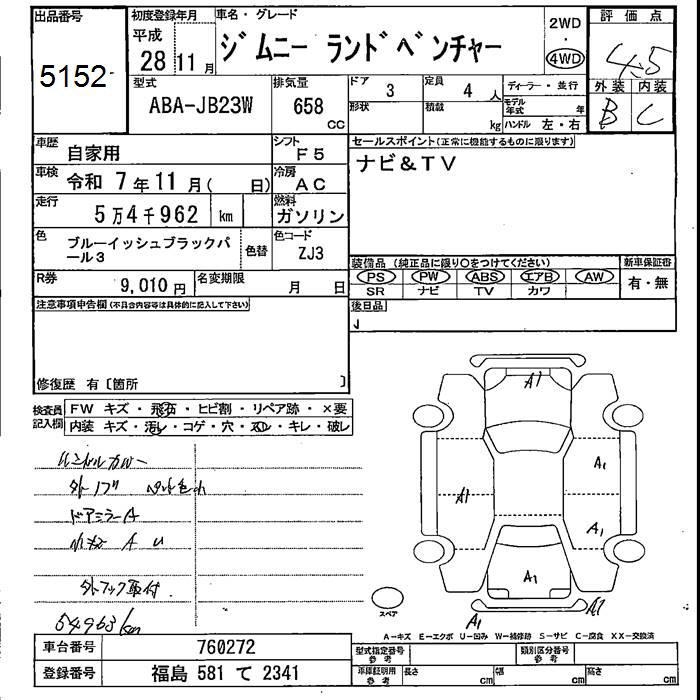 出品番号
5152
初度登録年月
平成
28 11月
車名・グレード
ジムニー ランドベンチャー
2WD
・
4WD
評価点
4.5
外装 内装
B C
型式
ABA-JB23W
排気量
658
CC
ドア
3
定員
4 人
形状
積載
kg
ディーラー・並行
モデル年式 年
ハンドル 左・右
車歴
自家用
シフト
F5
セールスポイント(正常に機能するものに限ります)
ナビ&TV
車検
令和 7年11月( 日)
冷房
AC
走行
5万4千962 km
燃料
ガソリン
色
ブルーイッシュブラックパール3
色替
色コード
ZJ3
装備品(純正品に限り○をつけてください)
PS PW ABS エアB AW
SR ナビ TV カワ
新車保証書
有・無
R券
9,010円
名変期限
月 日
後日品
注意事項申告欄(不具合内容等は具体的に記入して下さい)
修復歴 有〔箇所 〕
検査員記入欄
FW キズ・飛石・ヒビ割・リペア跡・×要
内装 キズ・汚レ・コゲ・穴・スレ・キレ・破レ
ドアミラーA
外フック取付
54963km
A1
A1
A1
A1
A1
A1
A1
スペア
A-キズ E-エクボ U-凹み W-補修跡 S-サビ C-腐食 XX-交換済
車台番号
760272
登録番号
福島 581 て 2341
型式指定番号
参考
類別区分番号
参考
車庫証明用
参考
長さ cm
幅 cm
高さ cm